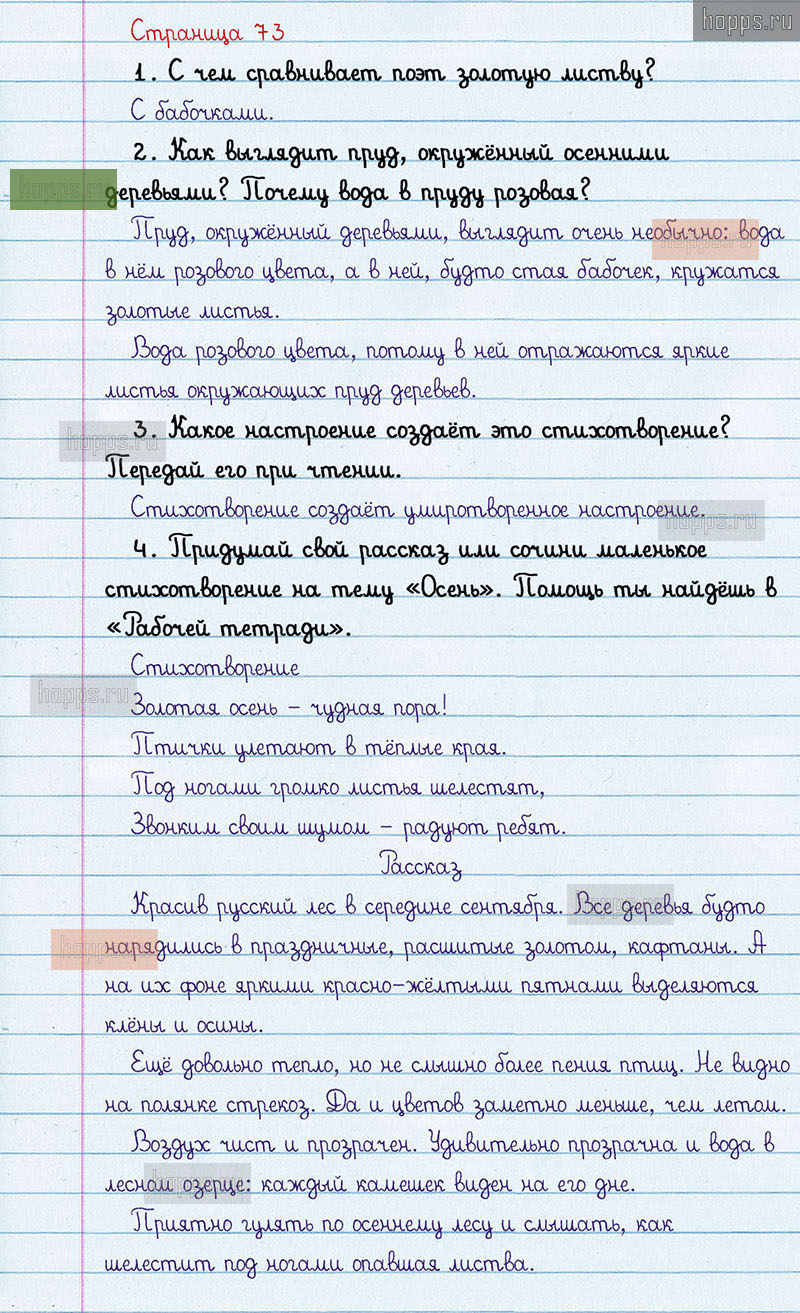 hopps.ru
Страница 73
1. С чем сравнивает поэт золотую листву?
С бабочками.
2. Как выглядит пруд, окружённый осенними
hopps.ru
деревьями? Почему вода в пруду розовая?
Пруд, окружённый деревьями, выглядит очень необычно: вода
hopps.ru
в нём розового цвета, а в ней, будто стая бабочек, кружатся
золотые листья.
Вода розового цвета, потому в ней отражаются яркие
листья окружающих пруд деревьев.
hopps.ru
3. Какое настроение создаёт это стихотворение?
Передай его при чтении.
Стихотворение создаёт умиротворенное настроение.
hopps.ru
4. Придумай свой рассказ или сочини маленькое
стихотворение на тему «Осень». Помощь ты найдёшь в
«Рабочей тетради».
Стихотворение
hopps.ru
Золотая осень – чудная пора!
Птички улетают в тёплые края.
Под ногами громко листья шелестят,
Звонким своим шумом – радуют ребят.
Рассказ
hopps.ru
Красив русский лес в середине сентября. Все деревья будто
hopps.ru
нарядились в праздничные, расшитые золотом, кафтаны. А
на их фоне яркими красно-жёлтыми пятнами выделяются
клёны и осины.
Ещё довольно тепло, но не слышно более пения птиц. Не видно
на полянке стрекоз. Да и цветов заметно меньше, чем летом.
Воздух чист и прозрачен. Удивительно прозрачна и вода в
hopps.ru
лесном озерце: каждый камешек виден на его дне.
Приятно гулять по осеннему лесу и слышать, как
шелестит под ногами опавшая листва.